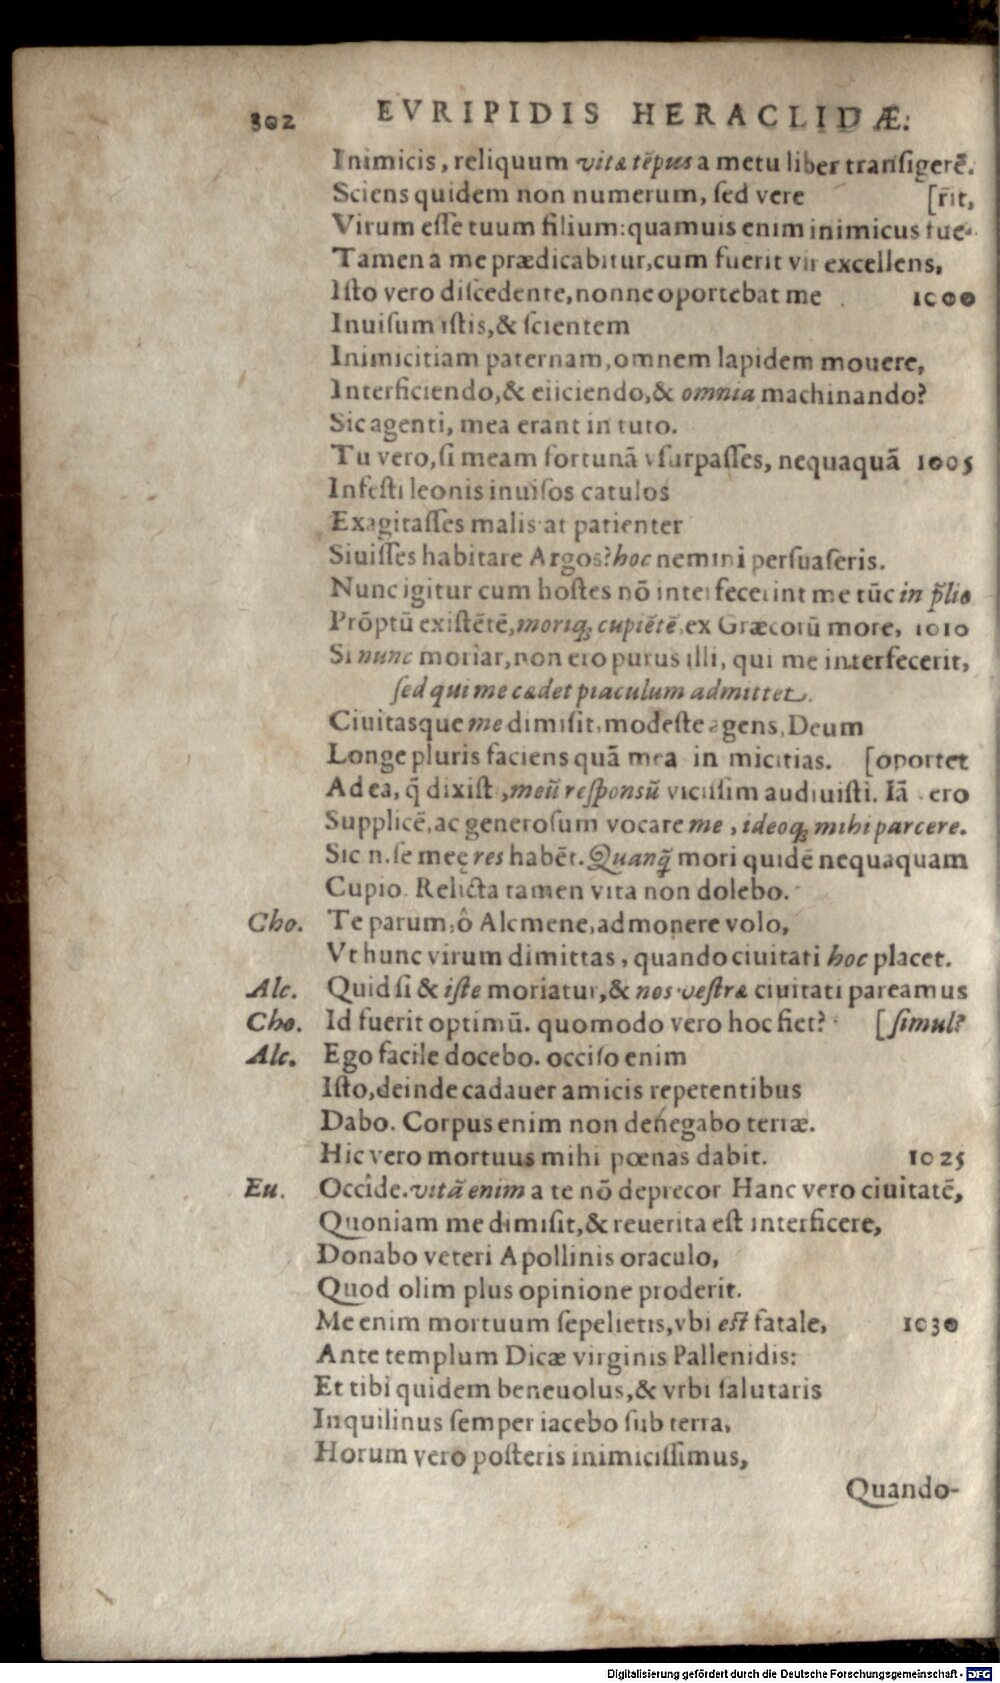 302 EVRIPIDIS HERACLIDÆ:
Inimicis, reliquum vitæ tēpus a metu liber transigerē.
Sciens quidem non numerum, sed vere [rīt,
Virum esse tuum filium: quamuis enim inimicus fue-
Tamen a me prædicabitur, cum fuerit vir excellens,
Isto vero discedente, nonne oportebat me 1000
Inuisum istis, & scientem
Inimicitiam paternam, omnem lapidem mouere,
Interficiendo, & eiiciendo, & omnia machinando?
Sic agenti, mea erant in tuto.
Tu vero, si meam fortunā vsurpasses, nequaquā 1005
Infesti leonis inuisos catulos
Exagitasses malis at patienter
Siuisses habitare Argos? hoc nemini persuaseris.
Nunc igitur cum hostes nō interfecerint me tūc in p̄lio
Prōptū existētē, moriq; cupiētē, ex Græcorū more, 1010
Si nunc moriar, non ero purus illi, qui me interfecerit,
sed qui me cædet piaculum admittet.
Ciuitasque me dimisit, modeste agens, Deum
Longe pluris faciens quā mea in micitias. [oportet
Ad ea, q̄ dixist, meū respōnsū vicissim audiuisti. Iā ero
Supplicē, ac generosum vocare me, ideoq; mihi parcere.
Sic n. se meę res habēt. Quanq̄ mori quidē nequaquam
Cupio. Relicta tamen vita non dolebo.
Cho. Te parum, ô Alcmene, admonere volo,
Vt hunc virum dimittas, quando ciuitati hoc placet.
Alc. Quid si & iste moriatur, & nos vestræ ciuitati pareamus
Cho. Id fuerit optimū. quomodo vero hoc fiet? [simul?
Alc. Ego facile docebo. occiso enim
Isto, deinde cadauer amicis repetentibus
Dabo. Corpus enim non denegabo terræ.
Hic vero mortuus mihi pœnas dabit. 1025
Eu. Occide. vitā enim a te nō deprecor Hanc vero ciuitatē,
Quoniam me dimisit, & reuerita est interficere,
Donabo veteri Apollinis oraculo,
Quod olim plus opinione proderit.
Me enim mortuum sepelietis, vbi est fatale, 1030
Ante templum Dicæ virginis Pallenidis:
Et tibi quidem beneuolus, & vrbi salutaris
Inquilinus semper iacebo sub terra,
Horum vero posteris inimicissimus,
Quando-
Digitalisierung gefördert durch die Deutsche Forschungsgemeinschaft - DFG